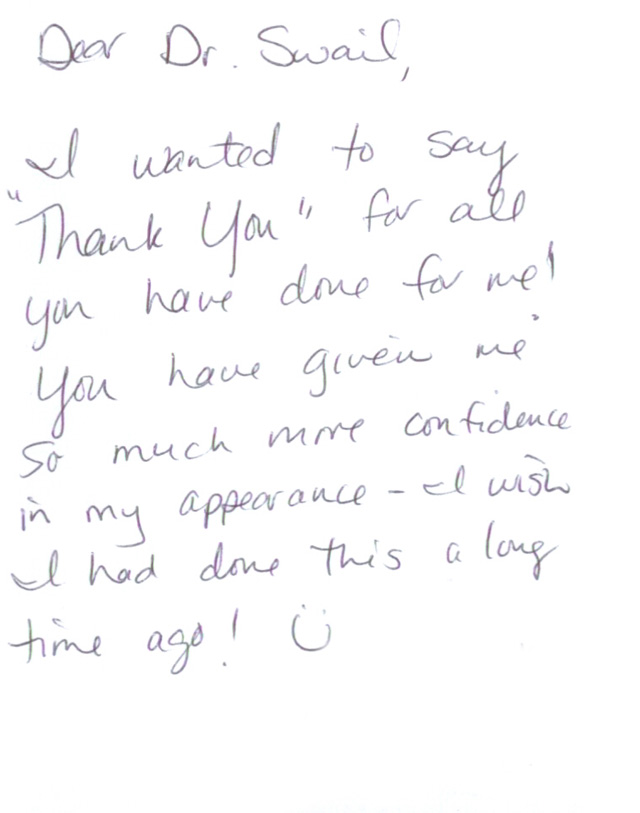 Dear Dr. Swail,
I wanted to say
"Thank You" for all
you have done for me!
You have given me
so much more confidence
in my appearance - I wish
I had done this a long
time ago! Ü